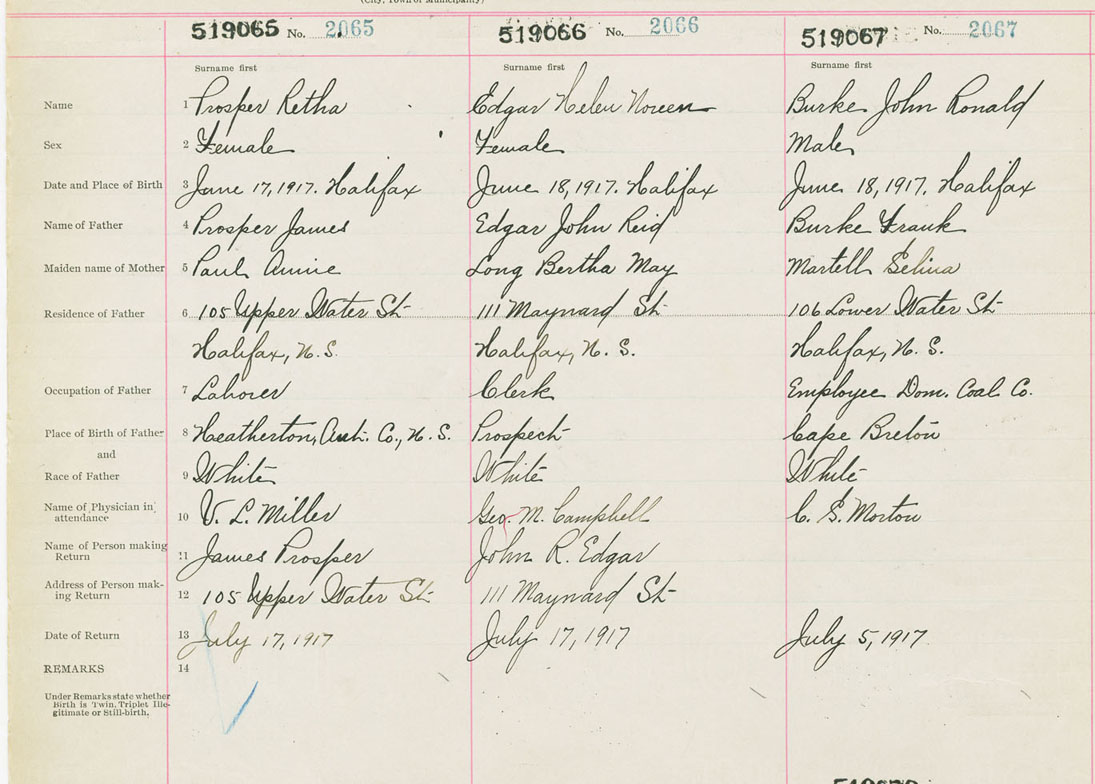 (City, Town or Municipality)
519065 No. 2065 519066 No. 2066 519067 No. 2067
Surname first Surname first Surname first
Name 1 Prosper Retha Edgar Helen Noreen Burke John Ronald
Sex 2 Female Female Male
Date and Place of Birth 3 June 17, 1917. Halifax June 18, 1917. Halifax June 18, 1917. Halifax
Name of Father 4 Prosper James Edgar John Reid Burke Frank
Maiden name of Mother 5 Paul Annie Long Bertha May Martell Selina
Residence of Father 6 105 Upper Water St. 111 Maynard St. 106 Lower Water St.
Halifax, N.S. Halifax, N. S. Halifax, N. S.
Occupation of Father 7 Laborer Clerk Employee Dom. Coal Co.
Place of Birth of Father 8 Heatherton, Ant. Co., N. S. Prospect Cape Breton
and
Race of Father 9 White White White
Name of Physician in attendance 10 V. L. Miller Geo. M. Campbell C. S. Morton
Name of Person making Return 11 James Prosper John R. Edgar
Address of Person mak-
ing Return 12 105 Upper Water St. 111 Maynard St.
Date of Return 13 July 17, 1917 July 17, 1917 July 5, 1917.
REMARKS 14
Under Remarks state whether
Birth is Twin, Triplet Ille-
gitimate or Still-birth.